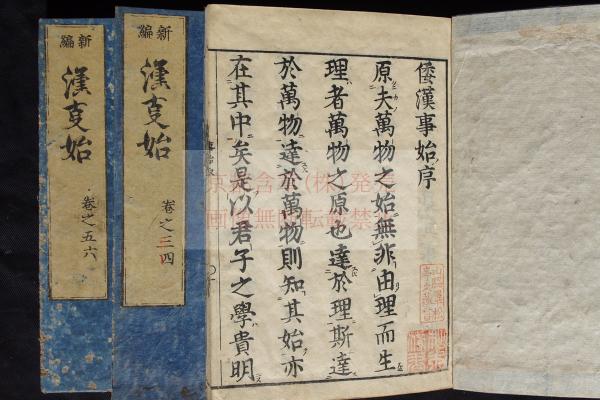 倭漢事始序
原夫萬物之始無非由理而生
理者萬物之原也達於理斯達
於萬物達於萬物則知其始亦
在其中矣是以君子之學貴明
新編
漢事始
卷之三四
新編
漢事始
卷之五六